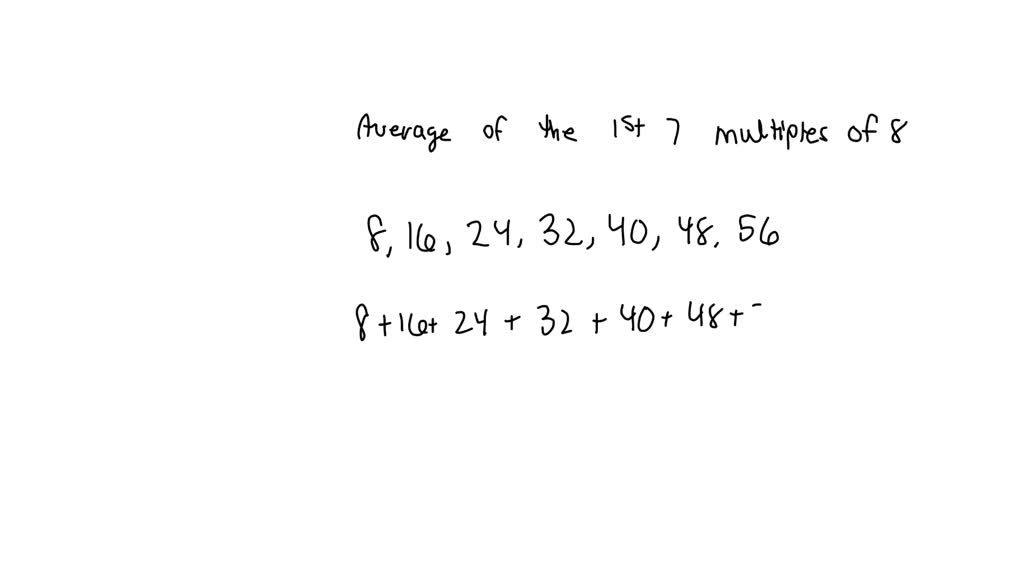 Average of the 1st 7 multiples of 8
8, 16, 24, 32, 40, 48, 56
8 + 16 + 24 + 32 + 40 + 48 +